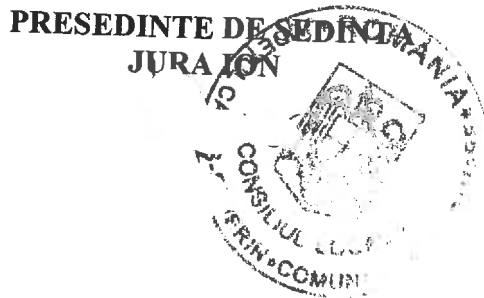 PRESEDINTE DE SEDINTA
JURA ION
ROMANIA
CONSILIUL LOCAL
COMUN